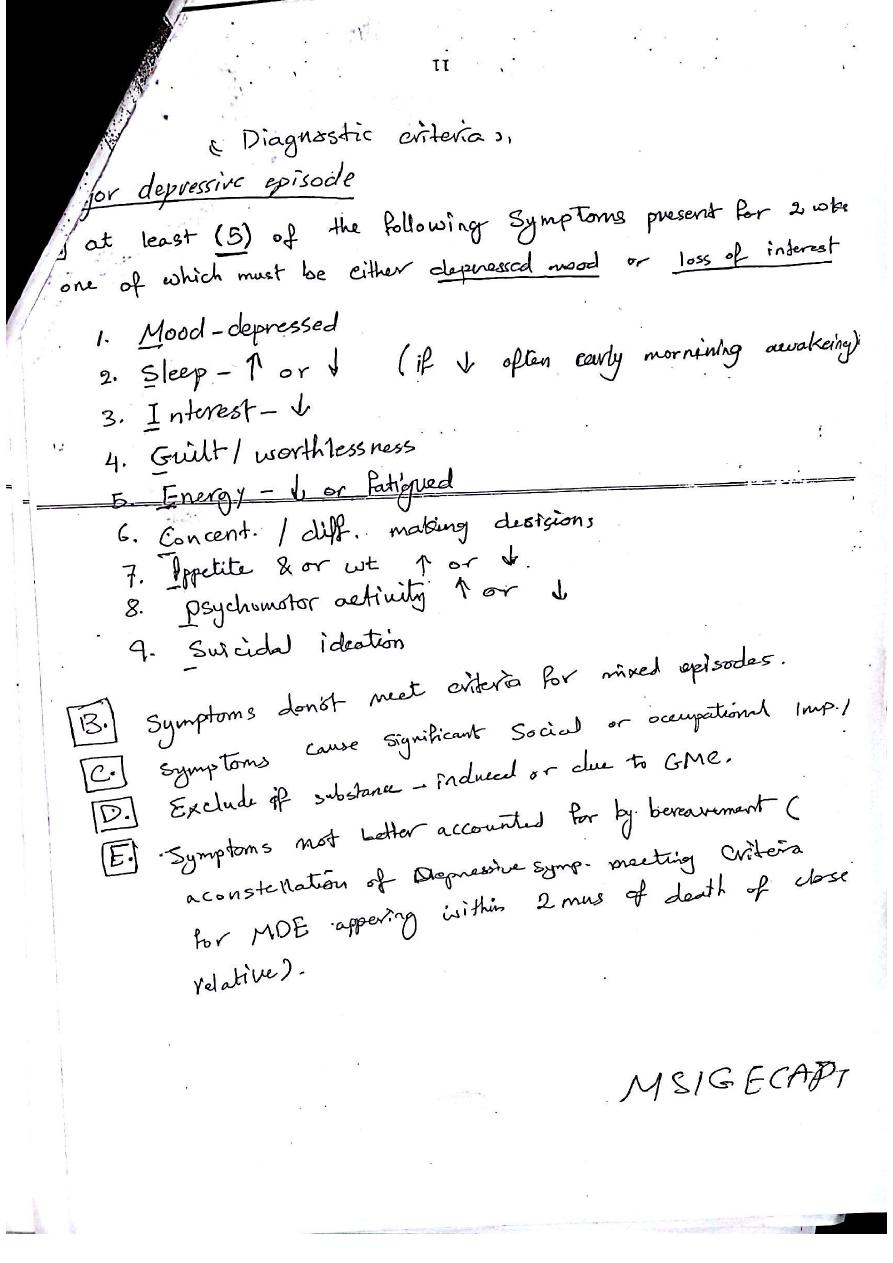 II
Diagnostic criteria
jor depressive episode
at least (5) of the following Symptoms present for 2 wks
one of which must be either depressed mood or loss of interest
1. Mood - depressed
2. Sleep - ↑ or ↓ (if ↓ often early mornining awakeing)
3. Interest - ↓
4. Guilt / worthlessness
5. Energy - ↓ or fatigued
6. Concent. / diff. making desiçions
7. Appetite & or wt ↑ or ↓.
8. Psychomotor activity ↑ or ↓
9. Suicidal ideation
B. Symptoms don't meet criteria for mixed episodes.
C. Symptoms cause significant Social or occupational Imp./
D. Exclude if substance - induced or due to GMC.
E. Symptoms not better accounted for by bereavement (
a constellation of Depressive symp. meeting Criteria
for MDE appering within 2 mns of death of close
relative).
MSIGECAP